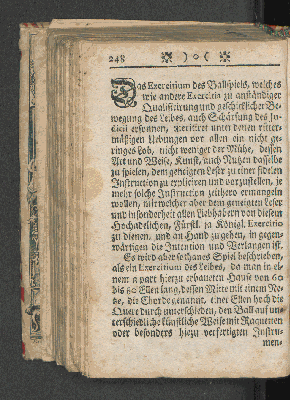 248
Das Exercitium des Ballspiels, welches
wie andere Exercitia zu anständiger
Qualificirung und geschicklicher Be-
wegung des Leibes, auch Schärfung des Ju-
dicii ersonnen, meritiret unter denen ritter-
mäßigen Uebungen vor allen ein nicht ge-
ringes Lob, nicht weniger der Mühe, dessen
Art und Weise, Kunst, auch Nutzen dasselbe
zu spielen, dem geneigten Leser zu einer fidelen
Instruction zu expliciren und verzustellen, je
mehr solche Instruction hiehero ermangeln
wollen, mit welcher aber dem geneigten Leser
und insonderheit allen Liebhabern von diesem
Hochadelichen, Fürstl. ja Königl. Exercitio
zu dienen, und an Hand zu gehen, in gegen-
wärtigen die Intention und Verlangen ist.
Es wird aber sothanes Spiel beschrieben,
als ein Exercitium des Leibes, da man in ei-
nem a part hierzu erbaueten Hause von 60
bis 80 Ellen lang, dessen Mitte mit einem Ne-
tze, die Chorde genannt, einer Ellen hoch die
Quere durch unterschieden, den Ball auf un-
terschiedliche künstliche Weise mit Raqueten
oder besonders hiezu verfertigten Instru-
men-